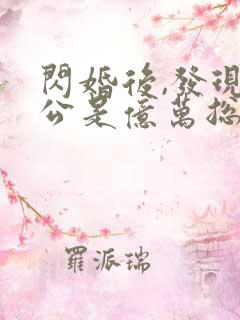 閃婚後,發現
公是億萬總
羅派瑞